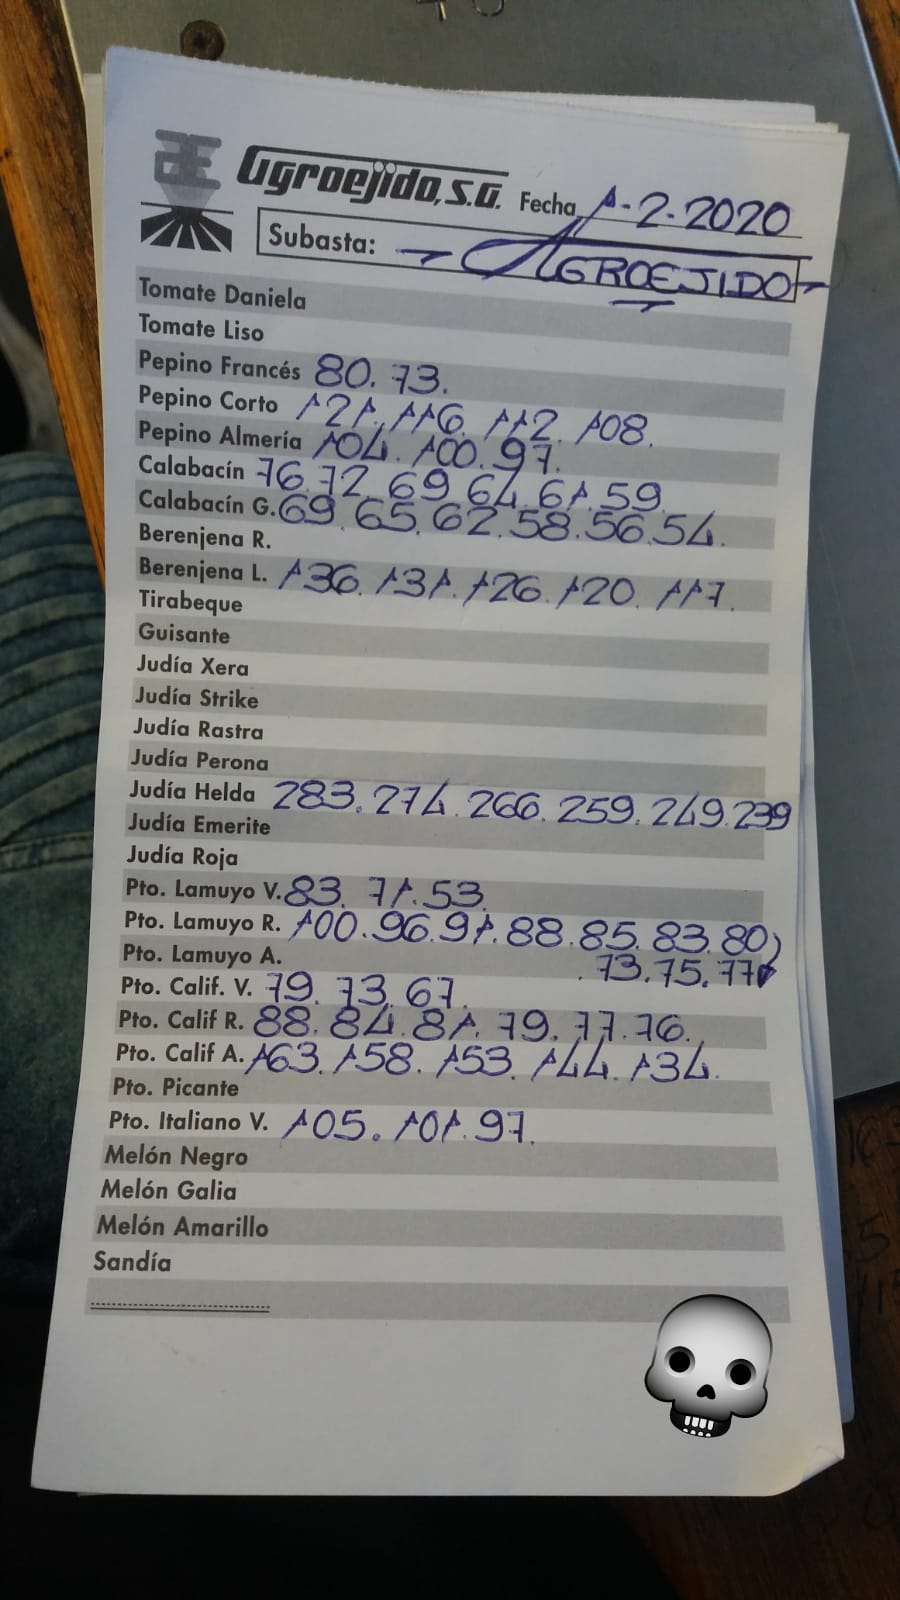 Agroejido, S.A. Fecha 1-2-2020
Subasta: - AGROEJIDO -
Tomate Daniela
Tomate Liso
Pepino Francés 80. 73.
Pepino Corto 121. 116. 112. 108.
Pepino Almería 104. 100. 97.
Calabacín 76. 72. 69. 64. 61. 59.
Calabacín G. 69. 65. 62. 58. 56. 54.
Berenjena R.
Berenjena L. 136. 131. 126. 120. 117.
Tirabeque
Guisante
Judía Xera
Judía Strike
Judía Rastra
Judía Perona
Judía Helda 283. 274. 266. 259. 249. 239
Judía Emerite
Judía Roja
Pto. Lamuyo V. 83. 71. 53.
Pto. Lamuyo R. 100. 96. 91. 88. 85. 83. 80
Pto. Lamuyo A. . 73. 75. 77
Pto. Calif. V. 79. 73. 67.
Pto. Calif R. 88. 84. 81. 79. 77. 76.
Pto. Calif A. 163. 158. 153. 144. 134.
Pto. Picante
Pto. Italiano V. 105. 101. 97.
Melón Negro
Melón Galia
Melón Amarillo
Sandía